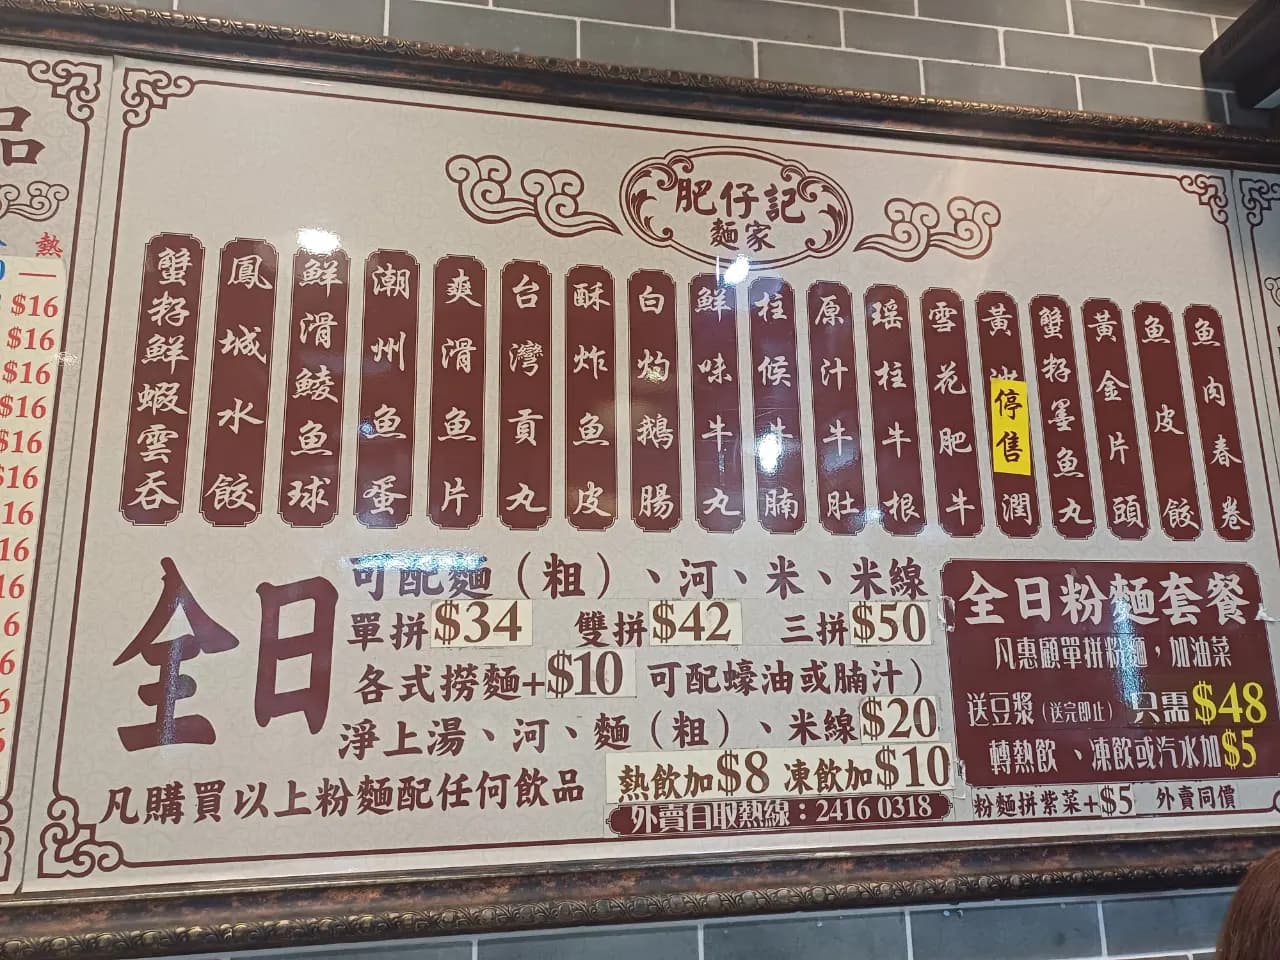 品
熱
$16
$16
$16
$16
$16
$16
肥仔記
麵家
蟹籽鮮蝦雲吞
鳳城水餃
鮮滑鯪魚球
潮州魚蛋
爽滑魚片
台灣貢丸
酥炸魚皮
白灼鵝腸
鮮味牛丸
柱候牛腩
原汁牛肚
瑤柱牛根
雪花肥牛
黃
停售
潤
蟹籽墨魚丸
黃金片頭
魚皮餃
魚肉春卷
全日
可配麵（粗）、河、米、米線
單拼$34 雙拼$42 三拼$50
各式撈麵+$10 可配蠔油或腩汁）
淨上湯、河、麵（粗）、米線$20
凡購買以上粉麵配任何飲品 熱飲加$8 凍飲加$10
外賣自取熱線：2416 0318
全日粉麵套餐
凡惠顧單拼粉麵，加油菜
送豆漿（送完即止）只需$48
轉熱飲、凍飲或汽水加$5
粉麵拼紫菜+$5 外賣同價